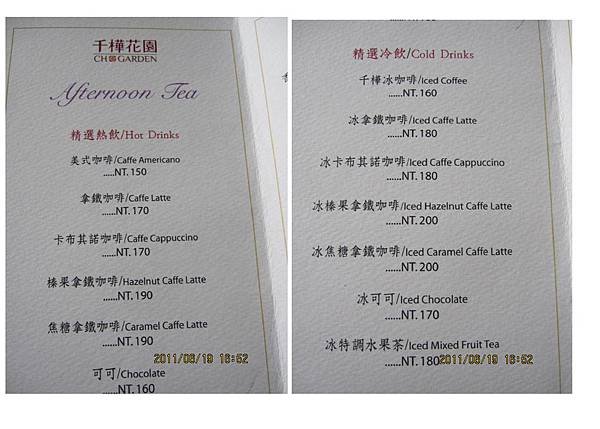 千樺花園
CH GARDEN
Afternoon Tea
精選熱飲/Hot Drinks
美式咖啡/Caffe Americano
.....NT. 150
拿鐵咖啡/Caffe Latte
......NT. 170
卡布其諾咖啡/Caffe Cappuccino
......NT. 170
榛果拿鐵咖啡/Hazelnut Caffe Latte
......NT. 190
焦糖拿鐵咖啡/Caramel Caffe Latte
......NT. 190
2011/06/19 16:52
可可/Chocolate
......NT. 160
精選冷飲/Cold Drinks
千樺冰咖啡/Iced Coffee
......NT. 160
冰拿鐵咖啡/Iced Caffe Latte
......NT. 180
冰卡布其諾咖啡/Iced Caffe Cappuccino
......NT. 180
冰榛果拿鐵咖啡/Iced Hazelnut Caffe Latte
......NT. 200
冰焦糖拿鐵咖啡/Iced Caramel Caffe Latte
......NT. 200
冰可可/Iced Chocolate
......NT. 170
冰特調水果茶/Iced Mixed Fruit Tea
......NT. 180
2011/06/19 16:52